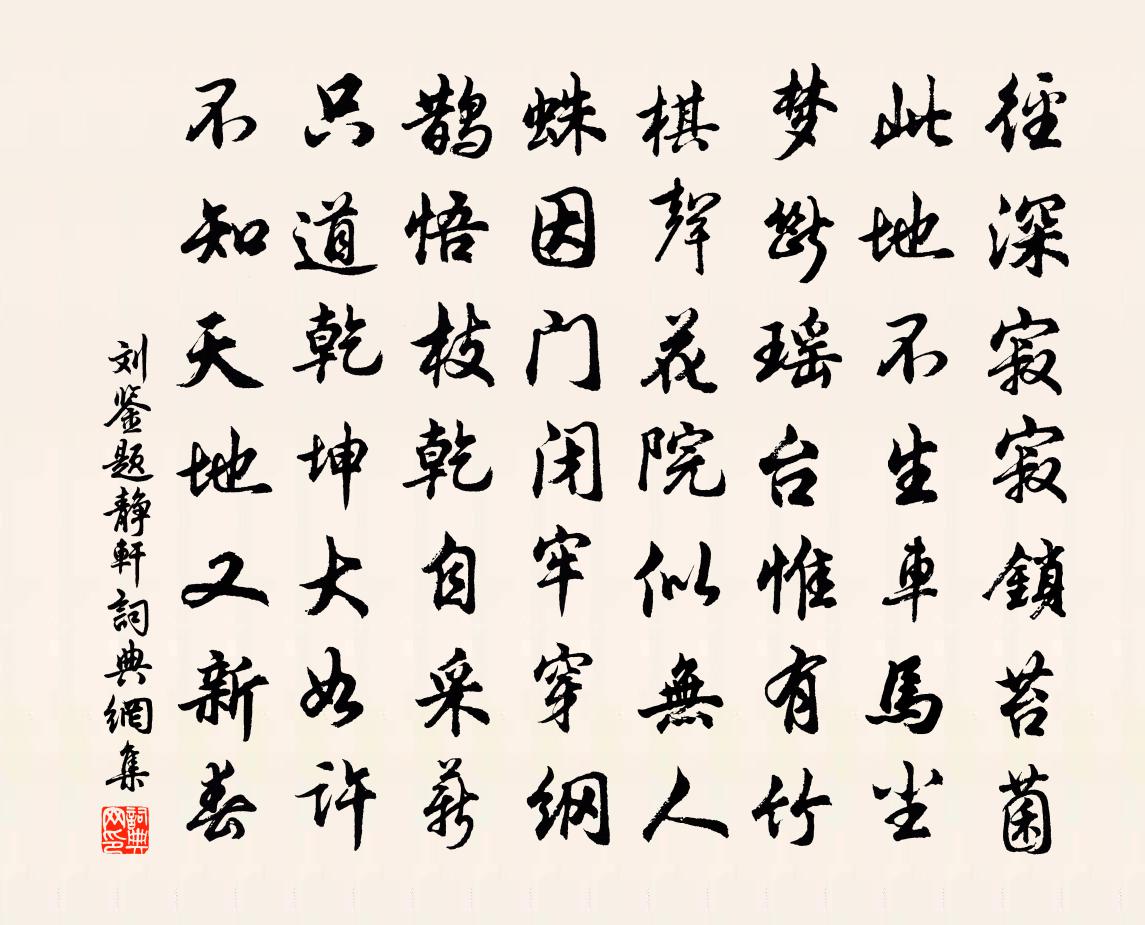 徑深寂寂鎖苔菌
此地不生車馬尘
梦断瑶台惟有竹
棋聲花院似無人
蛛因门闭牢穿網
鹊悟枝乾自采薪
只道乾坤大如许
不知天地又新春
刘鉴题静軒詞典網集
詞典网印